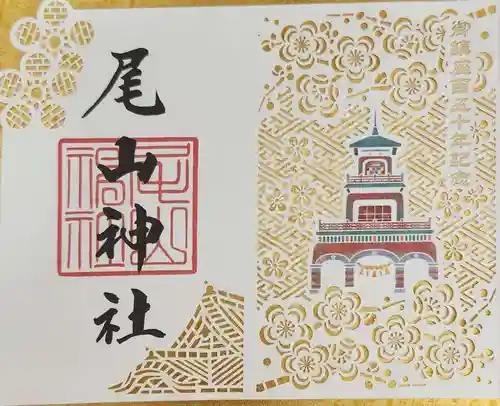 尾山神社
尾山神社
御鎮座百五十年記念